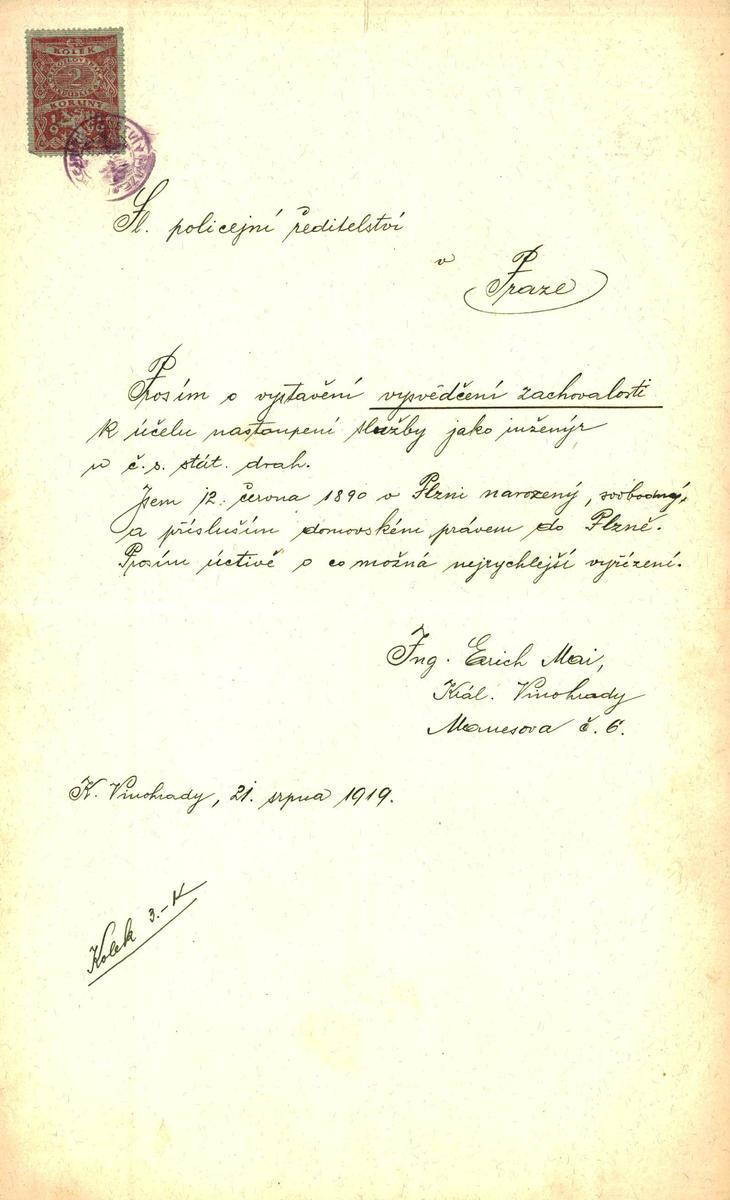 KOLEK
2
KORUNY
1919
Sl. policejní ředitelství
v
Praze
Prosím o vystavění vysvědčení zachovalosti
k účelu nastoupení služby jako inženýr
u č. s. stát. drah.
Jsem 12. června 1890 v Plzni narozený, svobodný,
a přísluším domovském právem do Plzně.
Prosím úctivě o co možná nejrychlejší vyřízení.
Ing. Erich Mai,
Král. Vinohrady
Manesova č. 6.
K. Vinohrady, 21. srpna 1919.
Kolek 3.- K